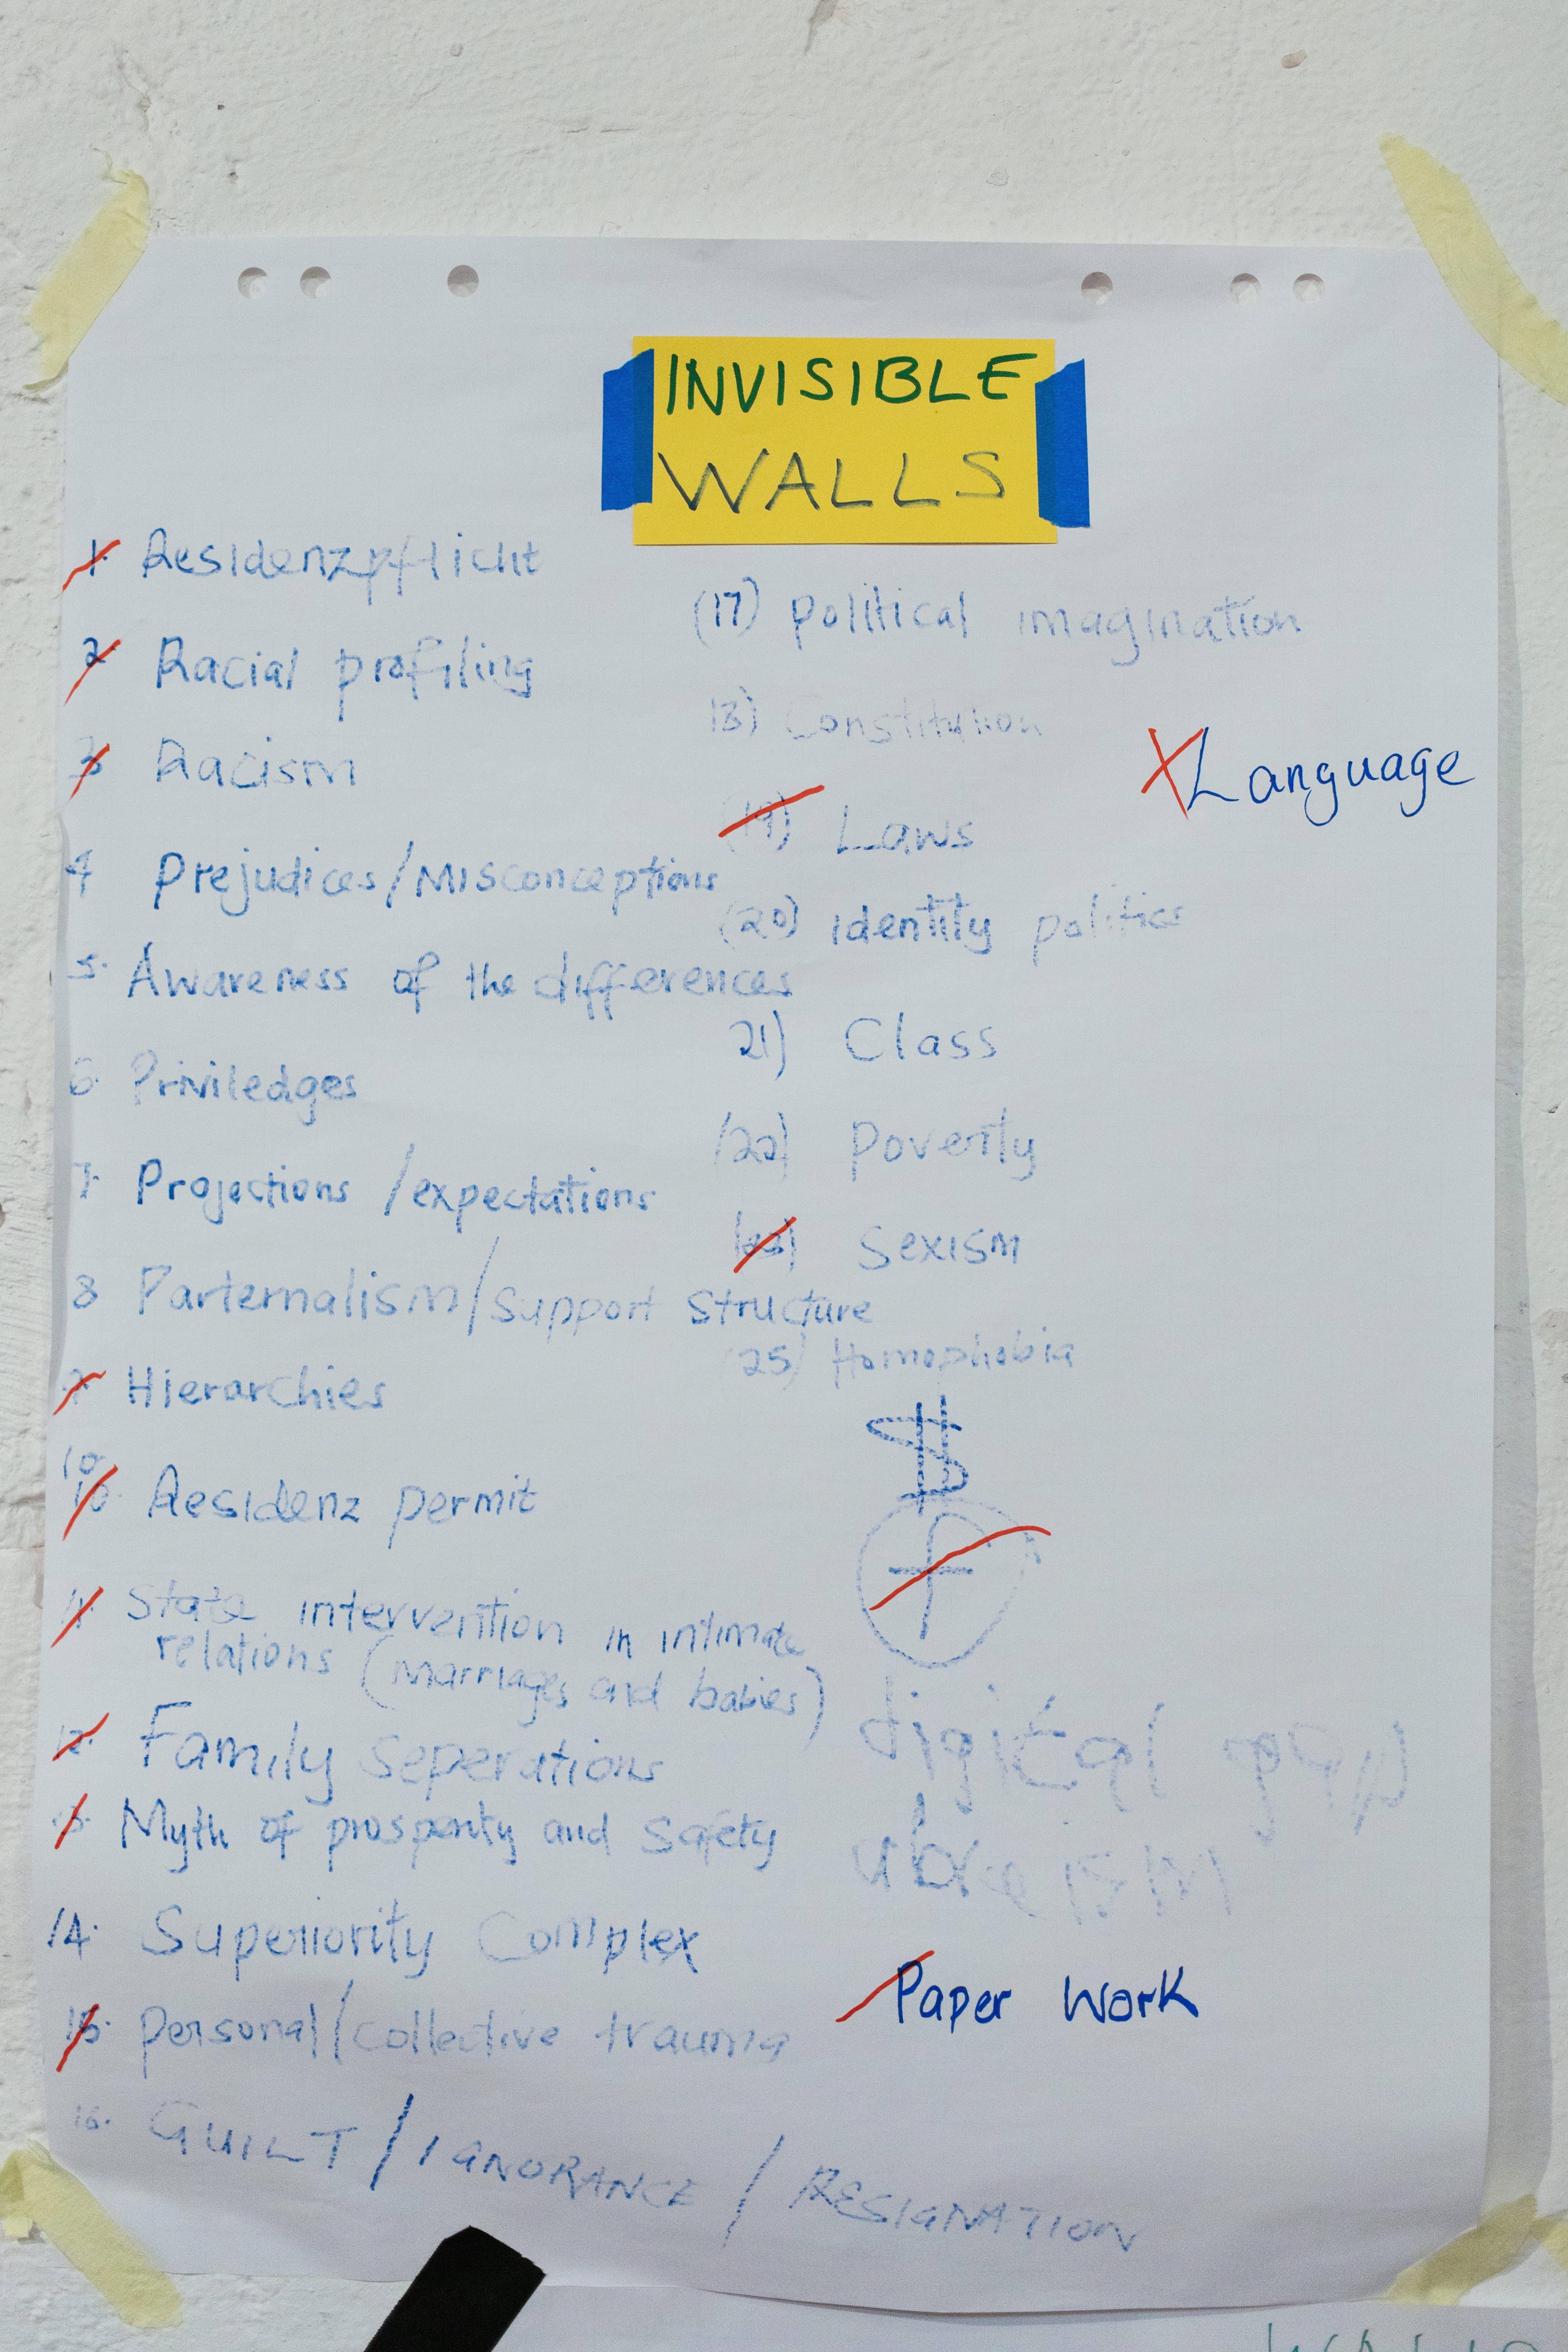 INVISIBLE
WALLS
1. Residenzpflicht
2. Racial profiling
3. Racism
4 Prejudices/Misconceptions
5. Awareness of the differences
6. Priviledges
7. Projections /expectations
8 Parternalism/Support Structure
9. Hierarchies
10.
10. Residenz permit
11. State intervention in intimate
relations (Marriages and babies)
12. Family seperations
13. Myth of prosperity and Safety
14. Superiority Complex
15. personal/collective trauma
16. GUILT / IGNORANCE / RESIGNATION
(17) political imagination
18) Constitution
(19) Laws
(20) identity politics
21) Class
(22) Poverty
Sexism
(25) Homophobia
$
digital gap
ableism
Paper Work
Language